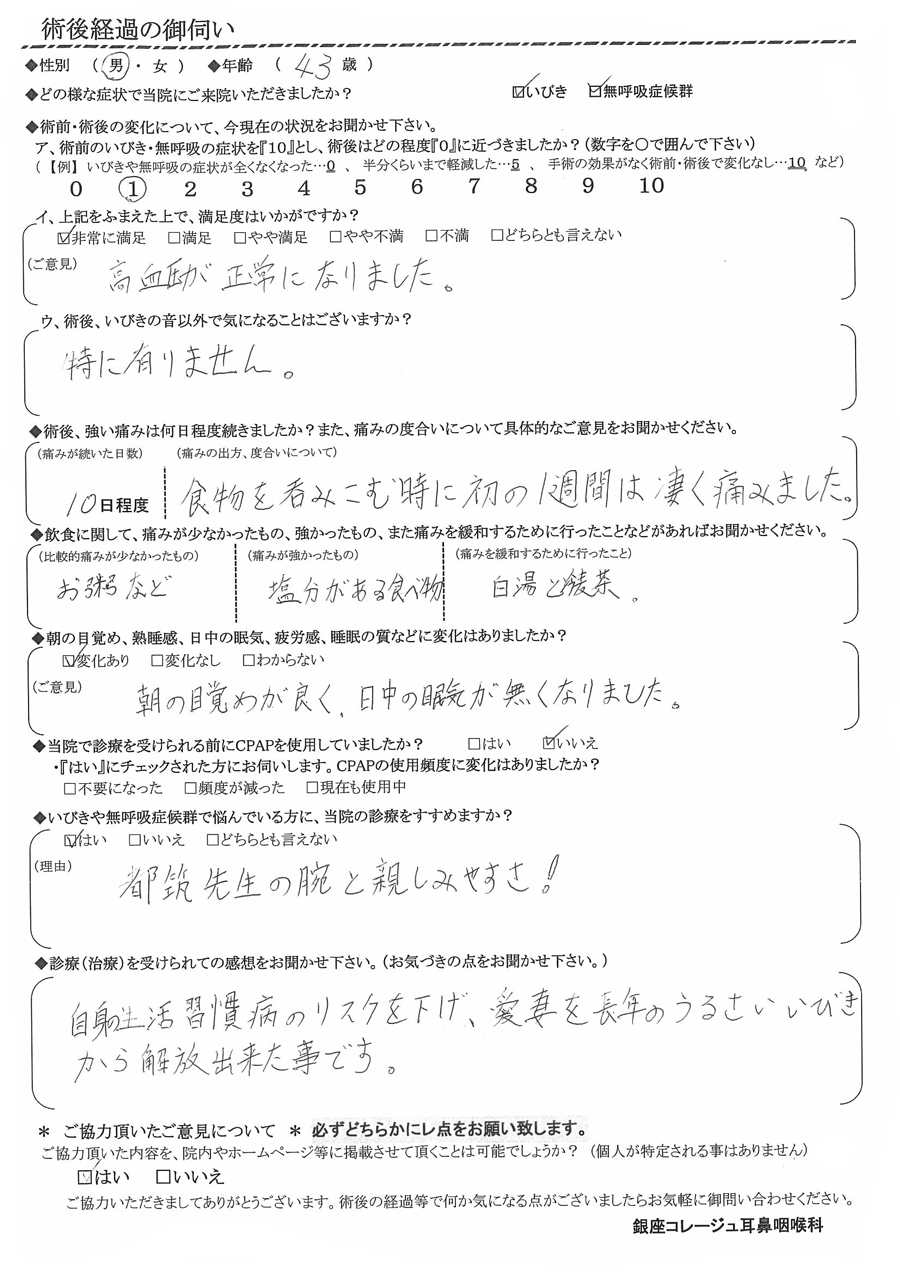 術後経過の御伺い
◆性別 (男・女) ◆年齢 (43歳)
◆どの様な症状で当院にご来院いただきましたか? ☑いびき ☑無呼吸症候群
◆術前・術後の変化について、今現在の状況をお聞かせ下さい。
ア、術前のいびき・無呼吸の症状を『10』とし、術後はどの程度『0』に近づきましたか?(数字を〇で囲んで下さい)
(【例】いびきや無呼吸の症状が全くなくなった…0 、 半分くらいまで軽減した…5 、 手術の効果がなく術前・術後で変化なし…10 など)
0 1 2 3 4 5 6 7 8 9 10
イ、上記をふまえた上で、満足度はいかがですか?
☑非常に満足 □満足 □やや満足 □やや不満 □不満 □どちらとも言えない
(ご意見) 高血圧が正常になりました。
ウ、術後、いびきの音以外で気になることはございますか?
特に有りません。
◆術後、強い痛みは何日程度続きましたか?また、痛みの度合いについて具体的なご意見をお聞かせください。
(痛みが続いた日数) (痛みの出方、度合いについて)
10日程度 食物を呑みこむ時に初の1週間は凄く痛みました。
◆飲食に関して、痛みが少なかったもの、強かったもの、また痛みを緩和するために行ったことなどがあればお聞かせください。
(比較的痛みが少なかったもの) (痛みが強かったもの) (痛みを緩和するために行ったこと)
お粥など 塩分がある食べ物 白湯と緑茶。
◆朝の目覚め、熟睡感、日中の眠気、疲労感、睡眠の質などに変化はありましたか?
☑変化あり □変化なし □わからない
(ご意見) 朝の目覚めが良く、日中の眠気が無くなりました。
◆当院で診療を受けられる前にCPAPを使用していましたか? □はい ☑いいえ
・『はい』にチェックされた方にお伺いします。CPAPの使用頻度に変化はありましたか?
□不要になった □頻度が減った □現在も使用中
◆いびきや無呼吸症候群で悩んでいる方に、当院の診療をすすめますか?
☑はい □いいえ □どちらとも言えない
(理由) 都筑先生の腕と親しみやすさ!
◆診療(治療)を受けられての感想をお聞かせ下さい。(お気づきの点をお聞かせ下さい。)
自身の生活習慣病のリスクを下げ、愛妻を長年のうるさいいびき
から解放出来た事です。
＊ ご協力頂いたご意見について ＊ 必ずどちらかにレ点をお願い致します。
ご協力頂いた内容を、院内やホームページ等に掲載させて頂くことは可能でしょうか?(個人が特定される事はありません)
☑はい □いいえ
ご協力いただきましてありがとうございます。術後の経過等で何か気になる点がございましたらお気軽に御問い合わせください。
銀座コレージュ耳鼻咽喉科